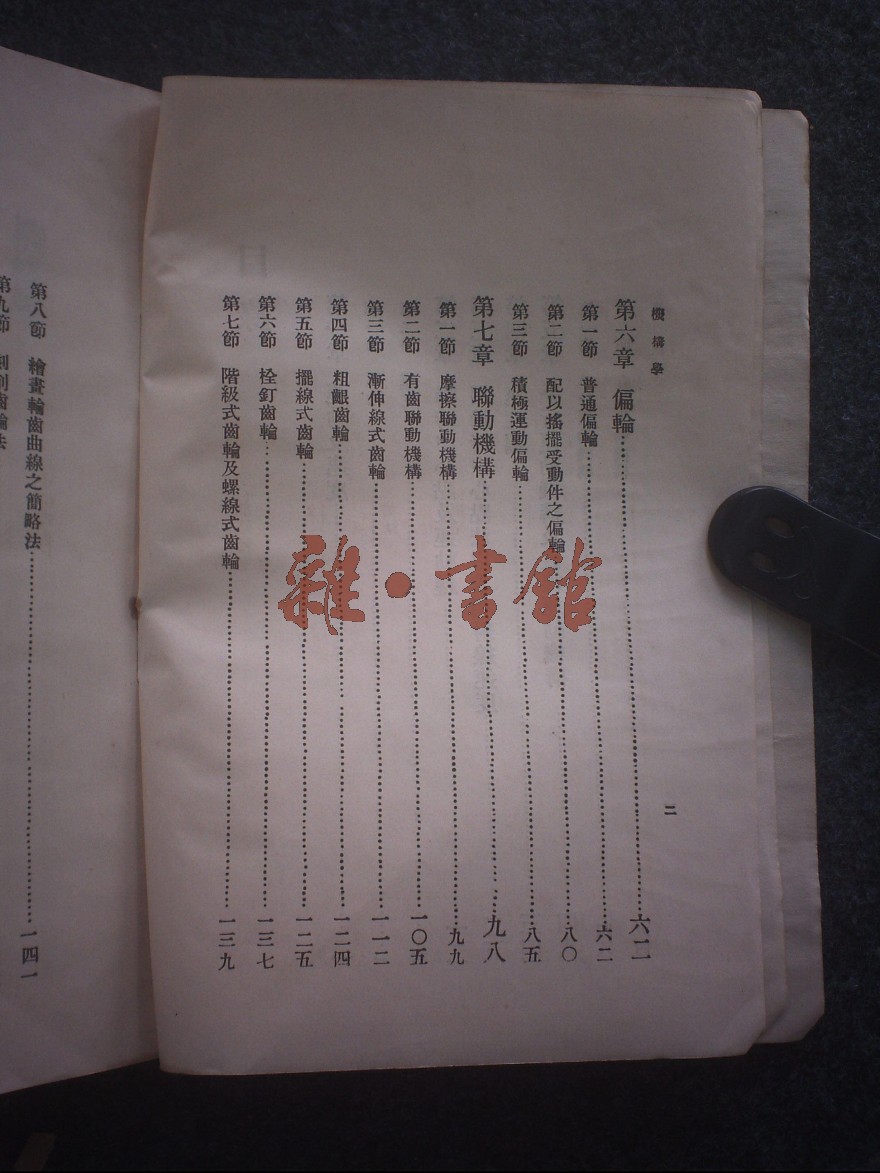 機構學
二
第六章 偏輪……六二
第一節 普通偏輪……六二
第二節 配以搖擺受動件之偏輪……八〇
第三節 積極運動偏輪……八五
第七章 聯動機構……九八
第一節 摩擦聯動機構……九九
第二節 有齒聯動機構……一〇五
第三節 漸伸線式齒輪……一一二
第四節 粗齦齒輪……一二四
第五節 擺線式齒輪……一二五
第六節 栓釘齒輪……一三七
第七節 階級式齒輪及螺線式齒輪……一三九
第八節 繪畫輪齒曲線之簡略法……一四一
第九節
雜·書館